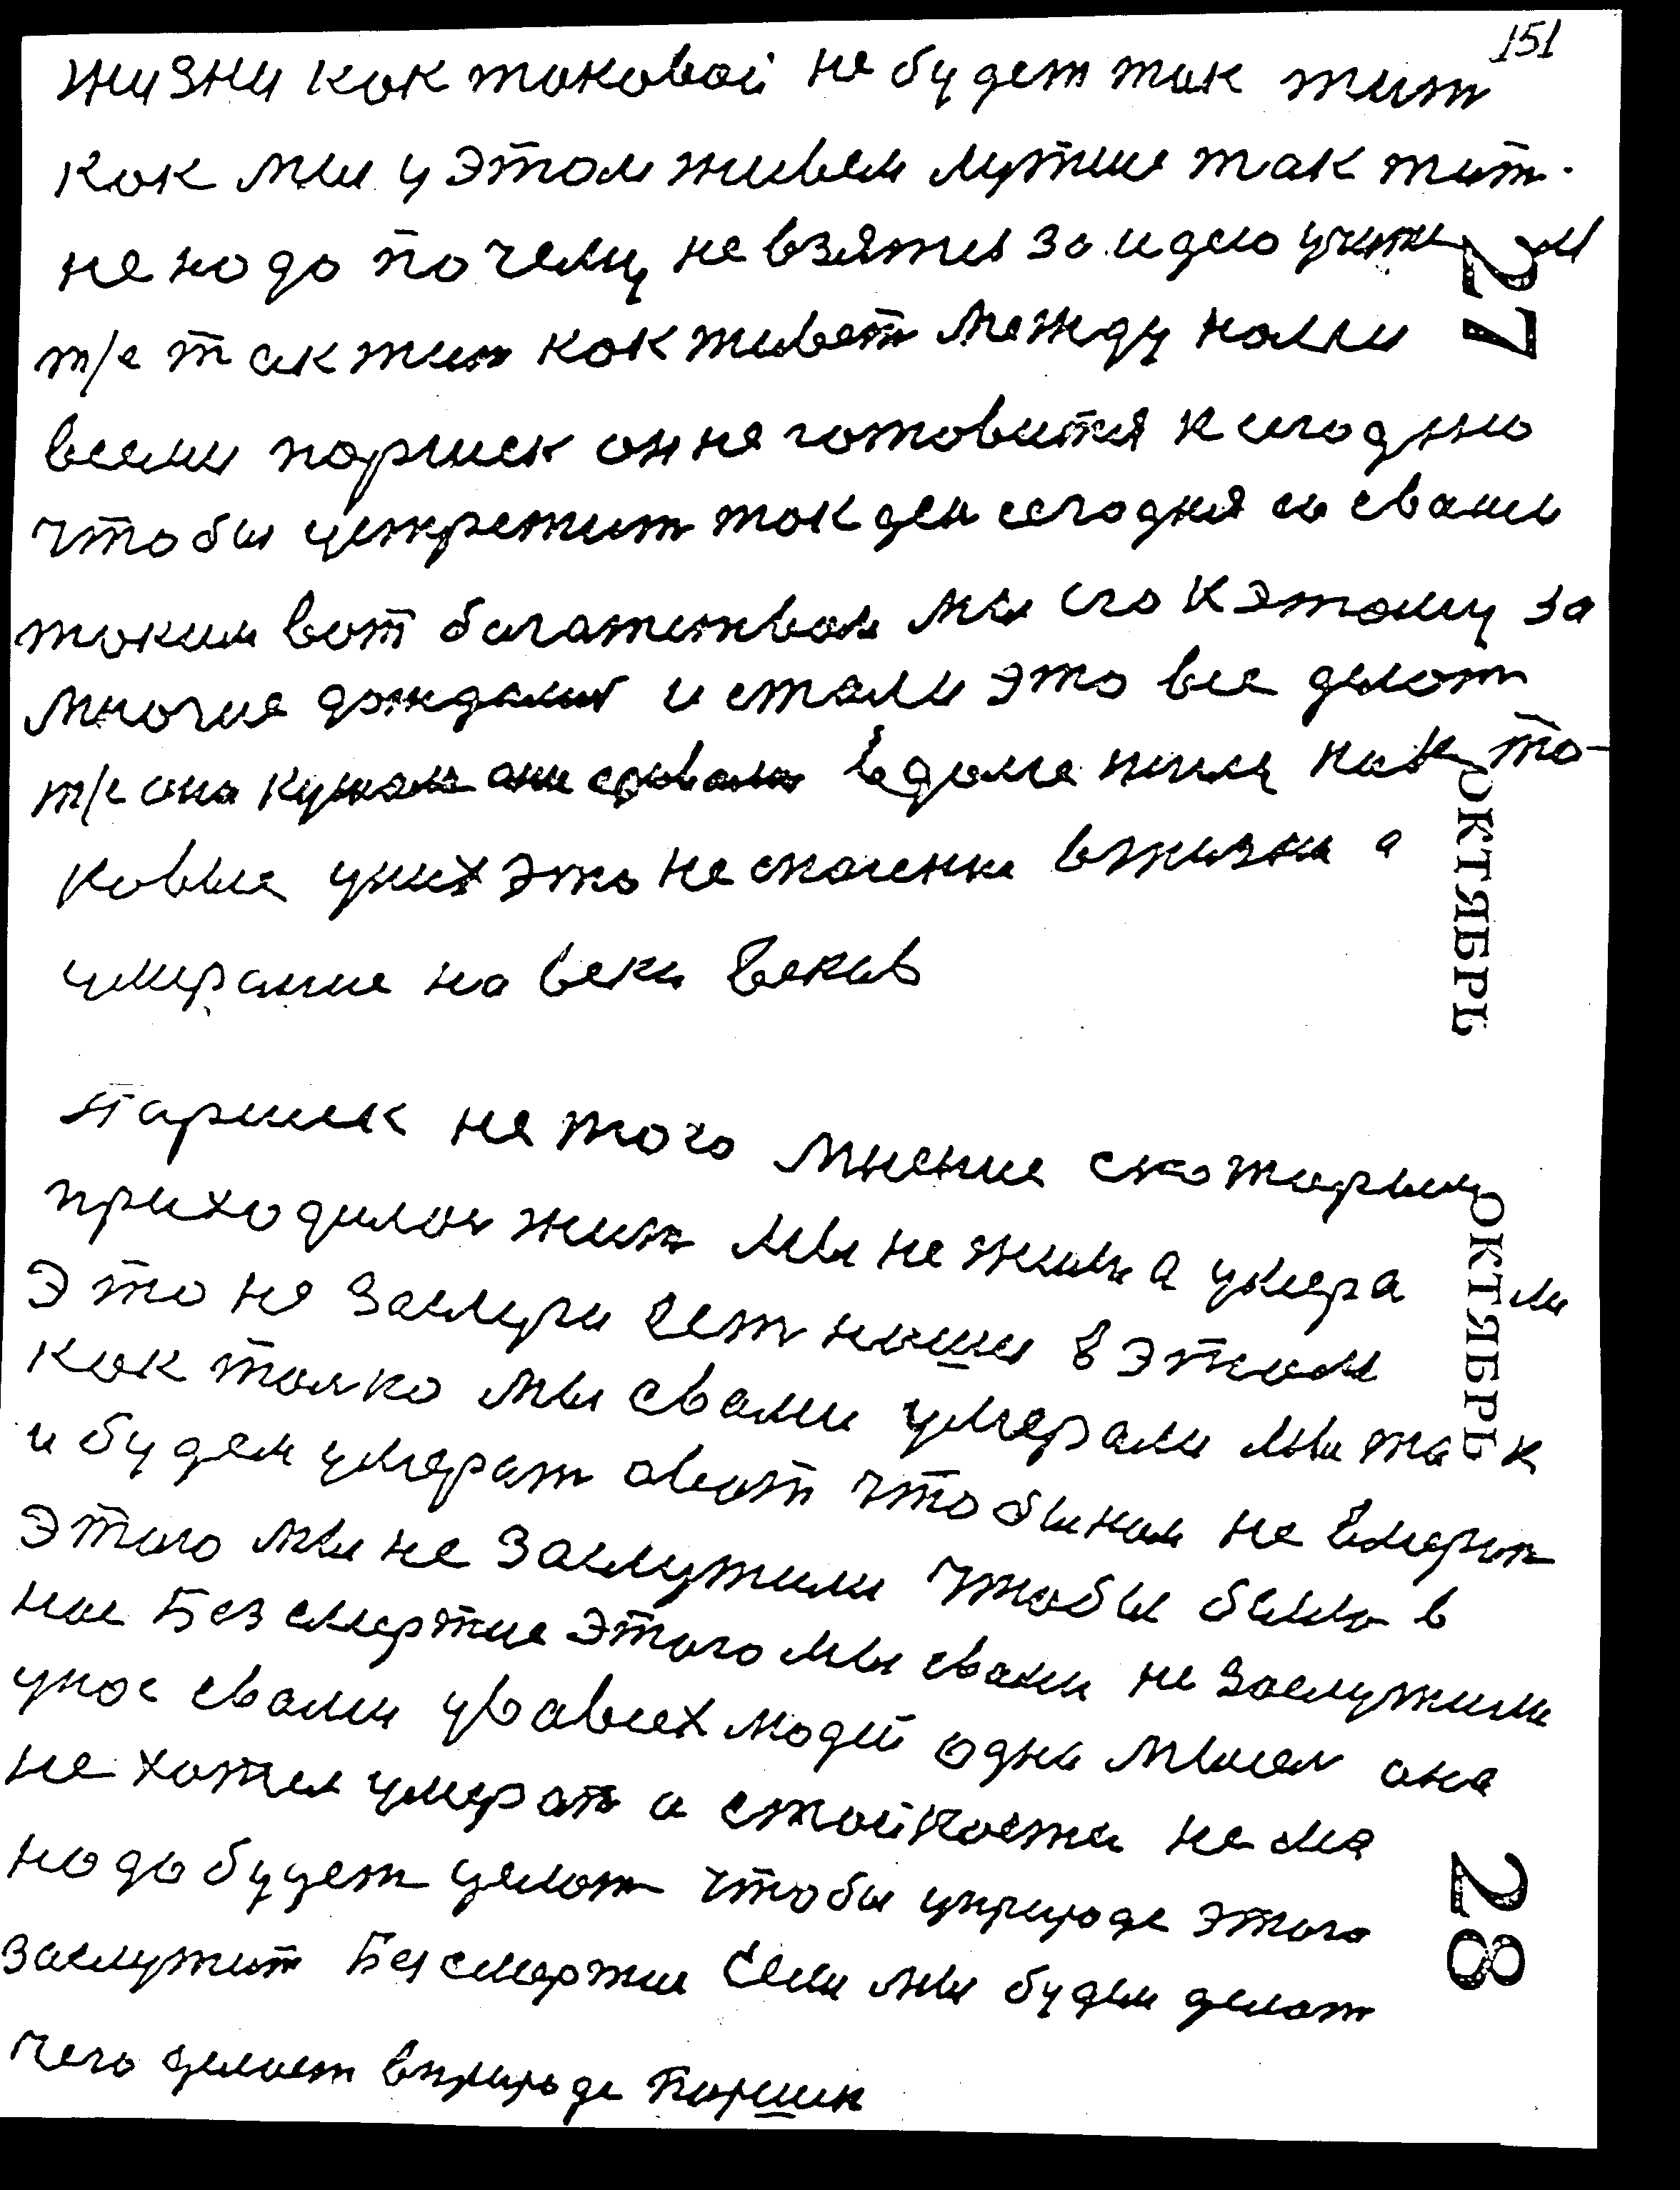 151
жизни кок токовой не будет так жит
Кок мы у этом живем лутше так жит.
не нодо почему не взятся за идею учит
27
т/е так жит кок живет между нами
всеми поршек он не готовится к сегодню
чтобы устретит ток ден сегодня со своим
токим вот богатством мы его к этому за
многие дождалис и стали это все делот
т/е они кушали они в доме жили как то-
ковые у них это не спасение в жизни а
умерание на веки веков
ОКТЯБРЬ
Паршек не того мнение с которым
приходилос жит Мы не жили а умерали
это не заслуги наши в этом
Кок толко мы с вами умерали мы так
и будем умерат а вот чтобы нам не умерат
этого мы не заслужили чтобы было в
нас Безсмертие этого мы с вами не заслужили
ОКТЯБРЬ
у нас с вами у во всех людей одна мысел она
не хотел умерат а стойкости нема
нодо будет делот чтобы у природе этого
заслужит Безсмертие Если мы будем делот
28
чего делает в природе Паршек